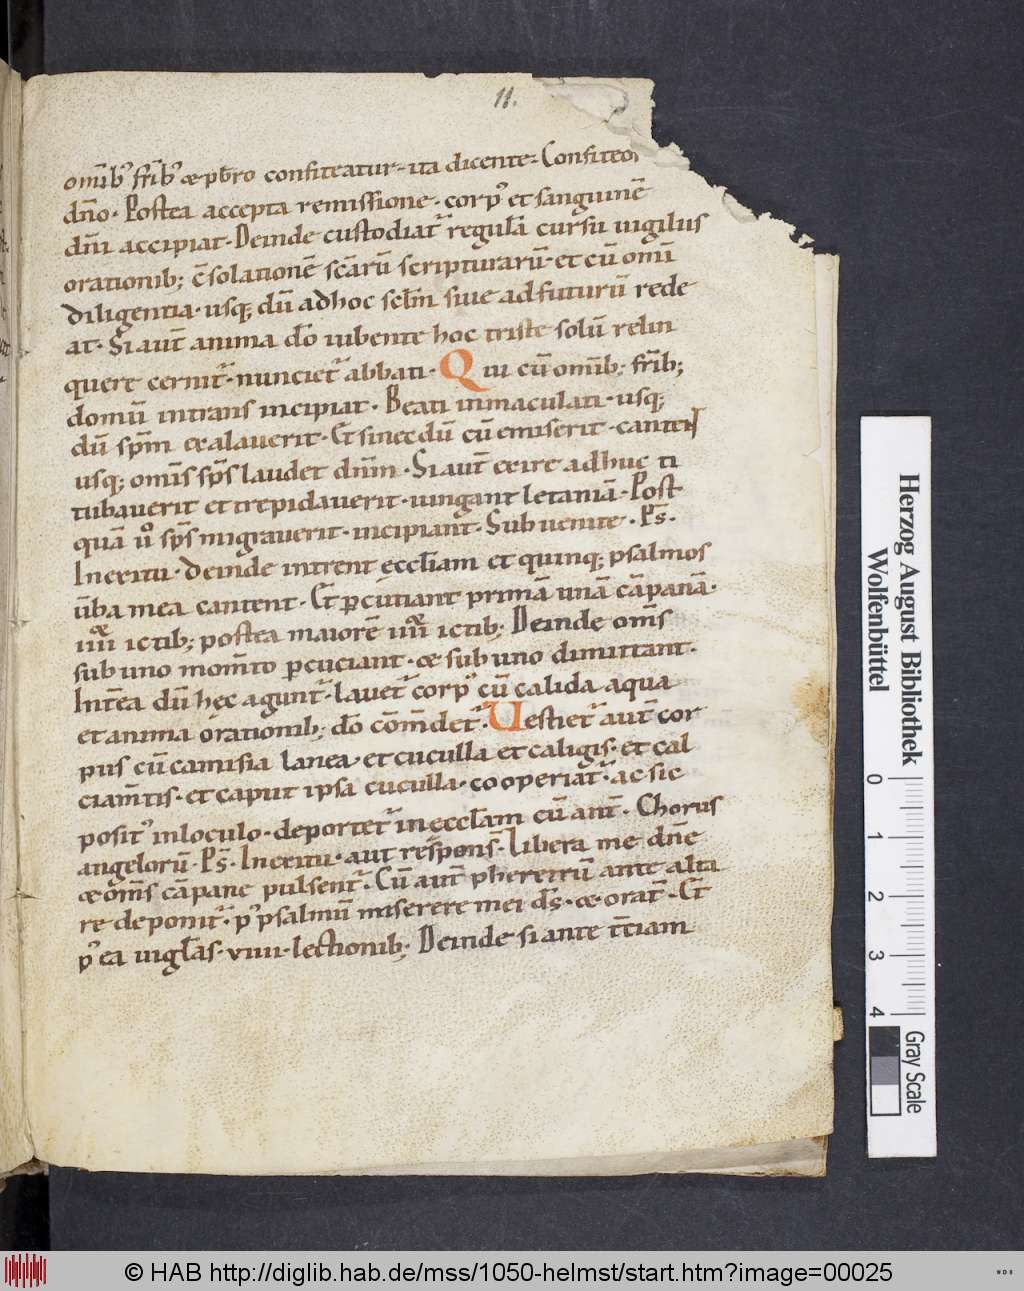 11.
om̄ibꝰ fr̄ibꝰ & p̄b̄ro confiteatur. ita dicente. Confiteor
dn̄o. Postea accepta remissione. corpꝰ et sanguinē
dn̄i accipiat. Deinde custodiat᷑ regulā cursu uigilus
orationib; c̄solationē scārū scripturarū. et cū om̄i
diligentia. usq; dū adhoc scl̄m siue ad futurū rede
at. Si aut̄ anima dō iubente hoc triste solū relin
quere cernit᷑. nunciet᷑ abbati. Qui cū om̄ib; fr̄ib;
domū intrans incipiat. Beati inmaculati. usq;
dū sp̄m exalauerit. Et sinec dū cū emiserit. cantet
usq; om̄is sp̄s laudet dn̄m. Si aut̄ exire adhuc ti
tubauerit et trepidauerit. iungant letaniā. Post
quā uͦ sp̄s migrauerit. incipiant. Subuenite. Ps̄.
Inexitu. deinde intrent eccl̄iam et quinq; psalmos
ūba mea cantent. Et ꝑcutiant primā unā cāpanā.
ictib; postea maiorē ictib; Deinde om̄s
sub uno mom̄to ꝑcuciant. & sub uno dimittant.
Int̄ea dū hec agunt᷑. lauet᷑ corpꝰ cū calida aqua
et anima orationib; dō cōm̄det᷑. Uestiet᷑ aut̄ cor
pus cū camisia lanea. et cuculla et caligis. et cal
ciam̄tis. et caput ipsa cuculla. cooperiat᷑. ac sic
positꝰ inloculo. deportet᷑ in eccl̄am cū ant̄. Chorus
angelorū. Ps̄. Inexitu. aut respons̄. Libera me dn̄e
& om̄s cāpane pulsent᷑. Cū aut̄ pheretrū ante alta
re deponit᷑. pꝰ psalmū miserere mei ds̄. & orat̄. Et
pꝰ ea uigl̄as. viiii. lectionib; Deinde si ante t̄ciam
Herzog August Bibliothek
Wolfenbüttel
0 1 2 3 4
Gray Scale
© HAB http://diglib.hab.de/mss/1050-helmst/start.htm?image=00025